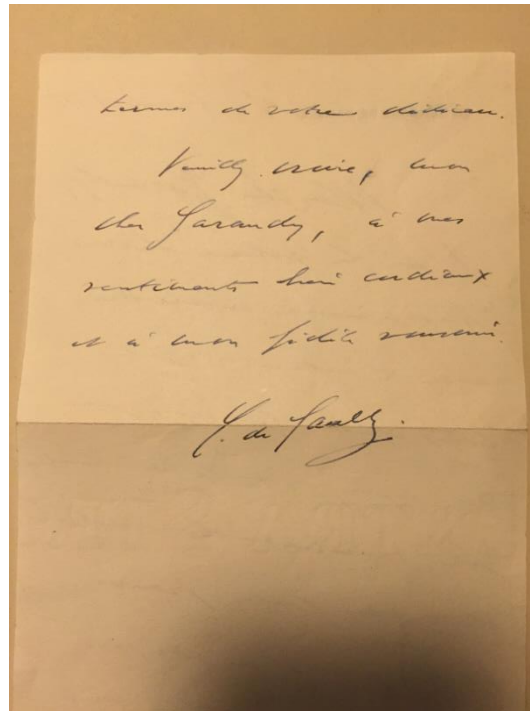 termes de votre dédicace.
Veuillez croire, mon
cher Garandy, à mes
sentiments bien cordiaux
et à mon fidèle souvenir.
C. de Gaulle.